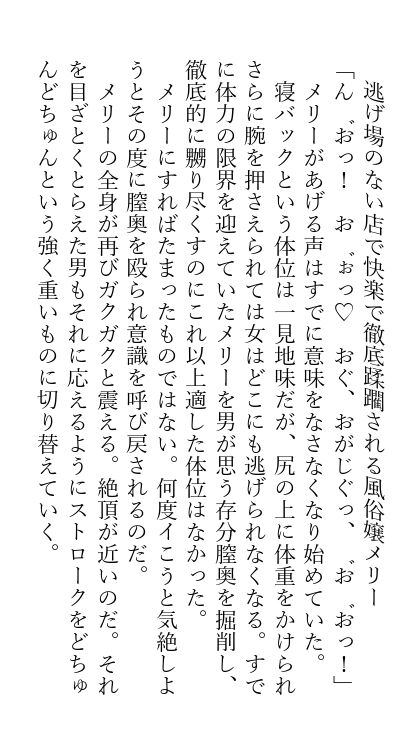 逃げ場のない店で快楽で徹底蹂躙される風俗嬢メリー
「ん゛おっ！　お゛ぉっ♡　おぐ、おがじぐっ、゛お゛おっ！」
　メリーがあげる声はすでに意味をなさなくなり始めていた。
　寝バックという体位は一見地味だが、尻の上に体重をかけられ
さらに腕を押さえられては女はどこにも逃げられなくなる。すで
に体力の限界を迎えていたメリーを男が思う存分膣奥を掘削し、
徹底的に嬲り尽くすのにこれ以上適した体位はなかった。
　メリーにすればたまったものではない。何度イこうと気絶しよ
うとその度に膣奥を殴られ意識を呼び戻されるのだ。
　メリーの全身が再びガクガクと震える。絶頂が近いのだ。それ
を目ざとくとらえた男もそれに応えるようにストロークをどちゅ
んどちゅんという強く重いものに切り替えていく。